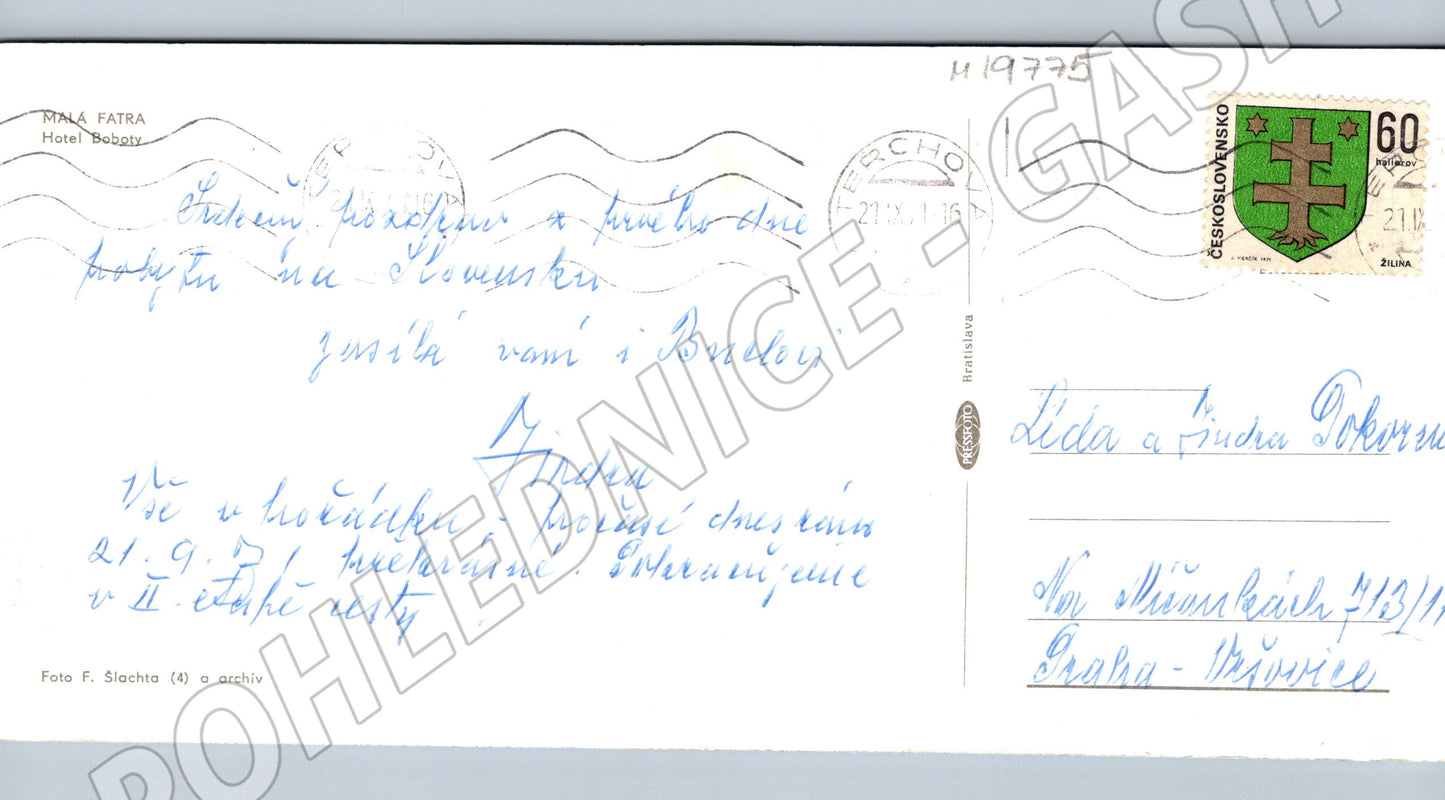 M 19775
MALÁ FATRA
Hotel Boboty
TERCHOVÁ
21.IX.71-16
TERCHOVÁ
21.IX.71-16
ČESKOSLOVENSKO
60
halierov
ŽILINA
21.IX
Srdečný pozdrav z prvého dne
pobytu na Slovensku
zasílá vám i
Jindra
Vše v pořádku - počasí dnes ráno
21.9.71 překrásné. Pokračujeme
v II. etapě cesty
Foto F. Šlachta (4) a archív
PRESSFOTO Bratislava
Lída a Jindra Pokorn
Na Míčánkách 713/1
Praha - Vršovice
POHLEDNICE - GASH